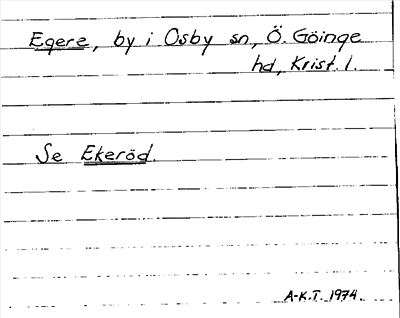 Egere, by i Osby sn, Ö. Göinge
hd, Krist. l.
Se Ekeröd.
A-K.T. 1974.